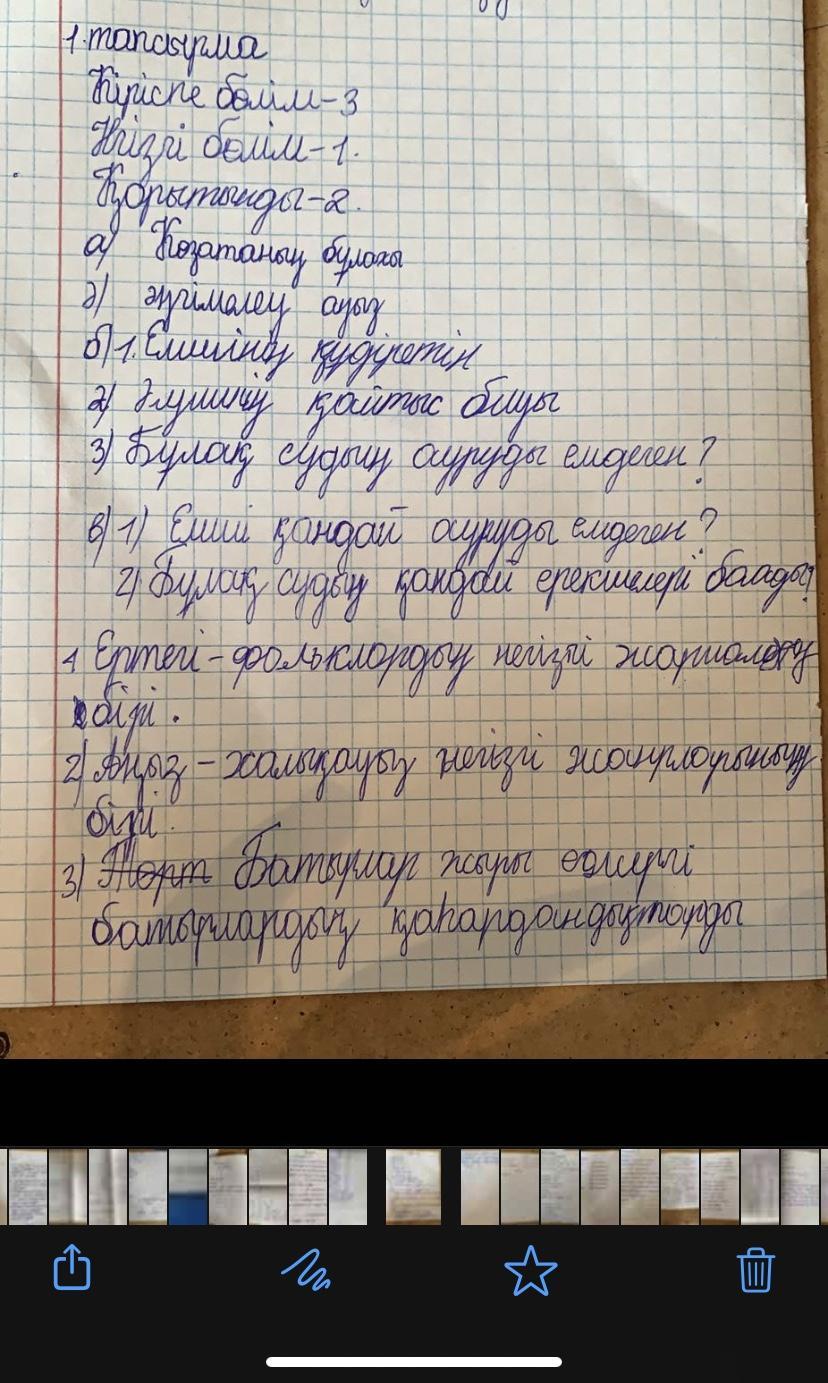 1. тапсырма
Кіріспе бөлім-3
Негізгі бөлім-1.
Қорытынды-2.
а) Көзатаның бұлағы
ә) әңгімелеу аңыз
б) 1. Емшінің құдіретін
2) Әлушінің қайтыс болуы
3) Бұлақ судың ауруды емдеген?
в) 1) Емші қандай ауруды емдеген?
2) Бұлақ судың қандай ерекшелері баады?
1 Ертегі-фольклордың негізгі
бірі.
2) Аңыз - халықауыз негізгі жанрларының
бірі.
3) Батырлар жыры
батырлардың қаһардандықтарды